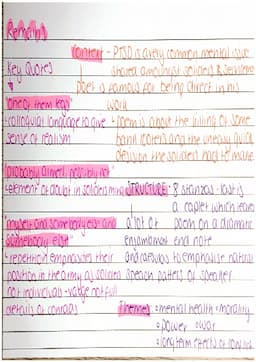 Remains
Context - PTSD is a very common mental issue
shared amongst soldiers & servicemen
poet is famous for being direct in his
work
Key Quotes
"one of them legs"
- colloquial language to give
sense of realism
- poem is about the killing of some
bank looters and the uneasy quick
decision the soldiers had to make
"probably armed, possibly not"
- element of doubt in soldiers mind
"myself and somebody else and
somebody else"
- repetition emphasises their
position in the army as soldiers
not individuals - vague not full
details of comrads
STRUCTURE - 8 stanzas - last is
a couplet which leaves
poem on a dramatic
end note
a lot of
enjambment
and caesuras to emphasise natural
speech patters of speaker
Themes: mental health morality
power war
long term effects of conflict